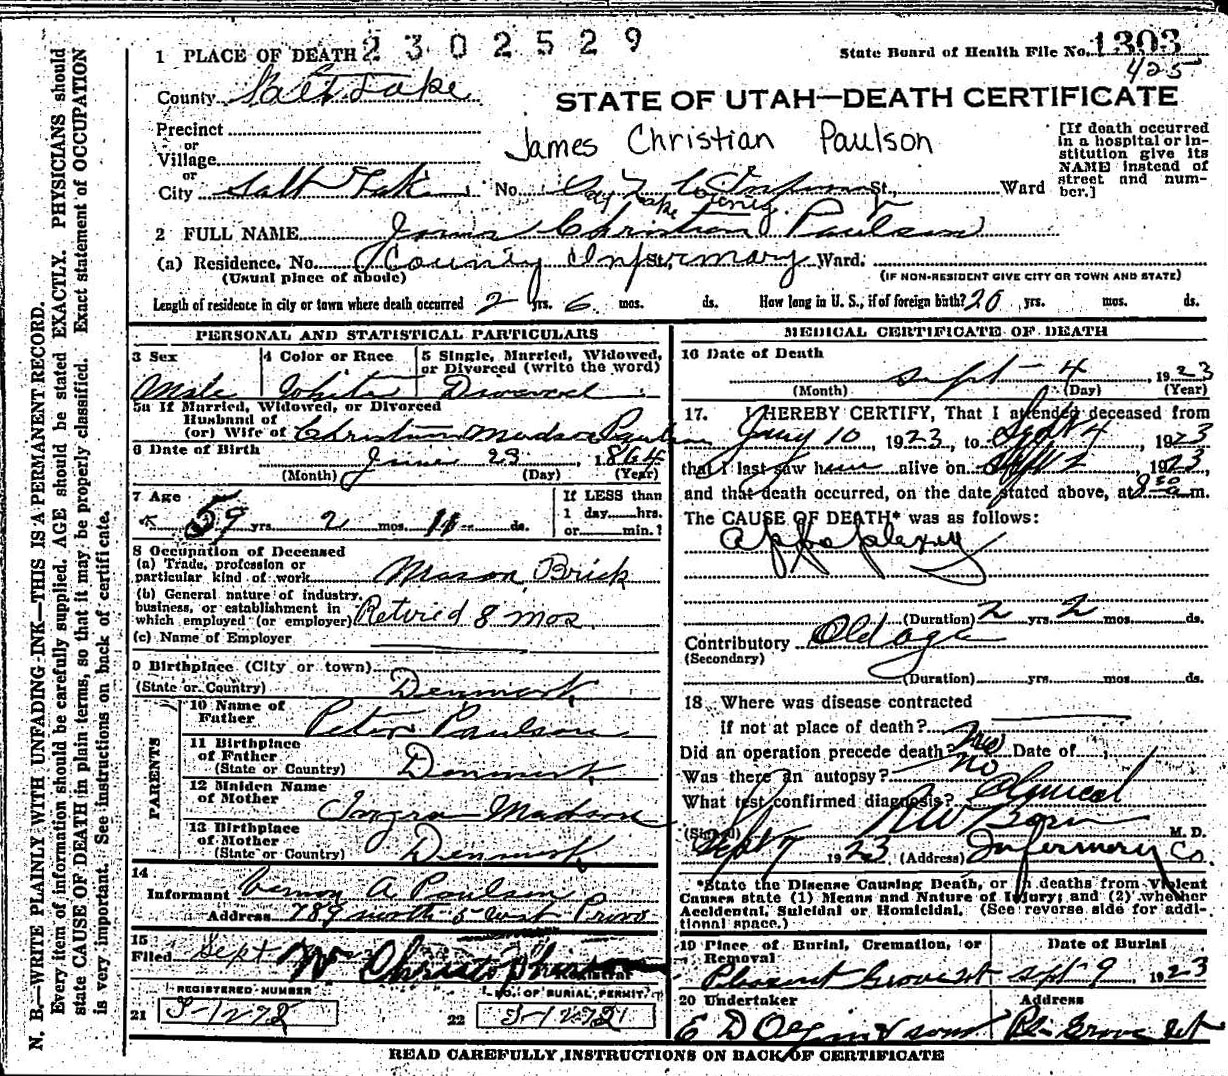 N. B.—WRITE PLAINLY WITH UNFADING INK—THIS IS A PERMANENT RECORD.
Every item of information should be carefully supplied. AGE should be stated EXACTLY. PHYSICIANS should
state CAUSE OF DEATH in plain terms, so that it may be properly classified. Exact statement of OCCUPATION
is very important. See instructions on back of certificate.
1 PLACE OF DEATH 2302529
State Board of Health File No. 1303
425
County Salt Lake
STATE OF UTAH—DEATH CERTIFICATE
Precinct
or
Village
or
James Christian Paulson
[If death occurred
in a hospital or in-
stitution give its
NAME instead of
street and num-
ber.]
City Salt Lake No. St., Ward
2 FULL NAME James Christian Paulson
(a) Residence. No. County Infirmary St., Ward.
(Usual place of abode)
(IF NON-RESIDENT GIVE CITY OR TOWN AND STATE)
Length of residence in city or town where death occurred 2 yrs. 6 mos. ds. How long in U. S., if of foreign birth? 20 yrs. mos. ds.
PERSONAL AND STATISTICAL PARTICULARS
3 Sex
Male
4 Color or Race
White
5 Single, Married, Widowed,
or Divorced (write the word)
Divorced
5a If Married, Widowed, or Divorced
Husband of
(or) Wife of Christina Madson Paulson
6 Date of Birth
June 23, 1864
(Month) (Day) (Year)
7 Age
59 yrs. 2 mos. 11 ds.
If LESS than
1 day hrs.
or min.?
8 Occupation of Deceased
(a) Trade, profession or
particular kind of work Mason Brick
(b) General nature of industry,
business, or establishment in
which employed (or employer) Retired 8 mos.
(c) Name of Employer
9 Birthplace (City or town)
(State or Country) Denmark
PARENTS
10 Name of
Father Peter Paulson
11 Birthplace
of Father
(State or Country) Denmark
12 Maiden Name
of Mother Madson
13 Birthplace
of Mother
(State or Country) Denmark
14
Informant Vernon A Paulson
Address 789 north 5 west Provo
15
Filed Sept
Registrar
REGISTERED NUMBER
21 S-1272
NO. OF BURIAL PERMIT
22 S-1272
MEDICAL CERTIFICATE OF DEATH
16 Date of Death
Sept 4, 1923
(Month) (Day) (Year)
17. I HEREBY CERTIFY, That I attended deceased from
10, 1923, to Sept 4, 1923
that I last saw him alive on Sept 2, 1923,
and that death occurred, on the date stated above, at 8 50 a m.
The CAUSE OF DEATH* was as follows:
Appoplexy
(Duration) 2 yrs. 2 mos. ds.
Contributory Old age
(Secondary)
(Duration) yrs. mos. ds.
18 Where was disease contracted
if not at place of death?
Did an operation precede death? no Date of
Was there an autopsy? no
What test confirmed diagnosis? Clinical
(Signed) M. D.
Sept 7 1923 (Address) Infermery Co.
*State the Disease Causing Death, or in deaths from Violent
Causes state (1) Means and Nature of Injury; and (2) whether
Accidental, Suicidal or Homicidal. (See reverse side for addi-
tional space.)
19 Place of Burial, Cremation, or
Removal
Pleasant Grove Ut
Date of Burial
Sept 9 1923
20 Undertaker
Address
Pl. Grove Ut
READ CAREFULLY INSTRUCTIONS ON BACK OF CERTIFICATE